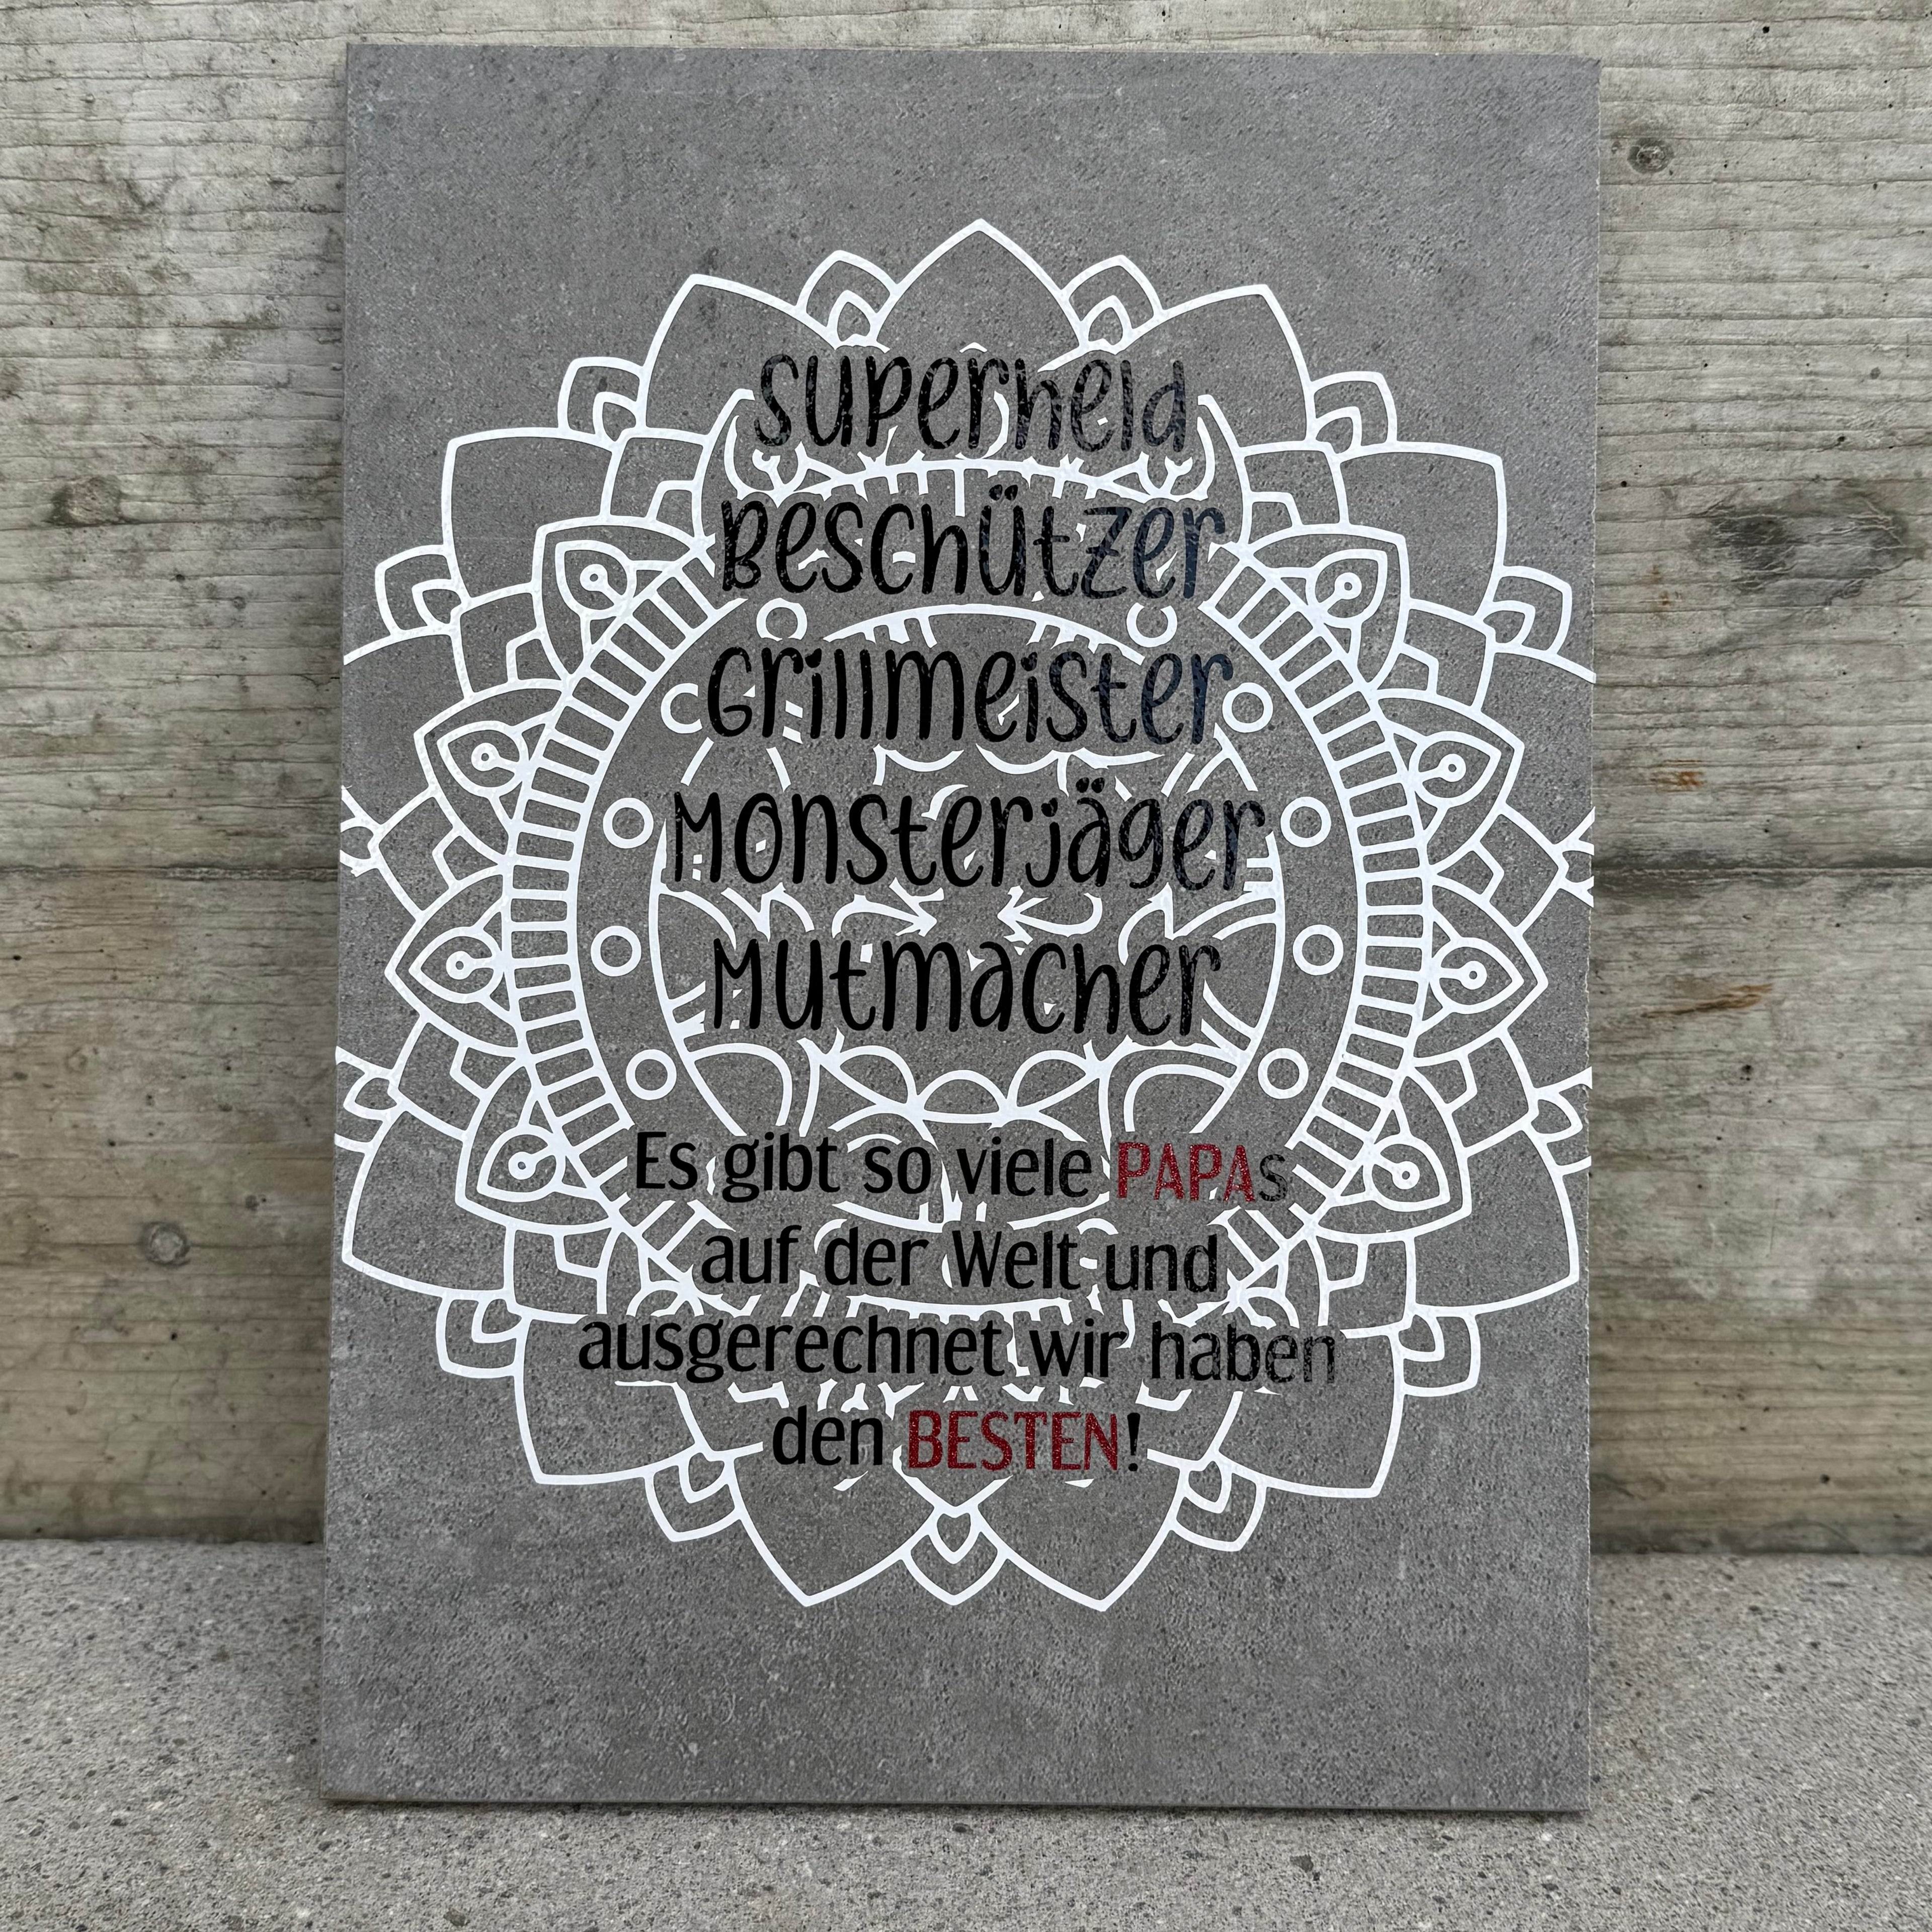 Superheld
Beschützer
Grillmeister
Monsterjäger
Mutmacher
Es gibt so viele PAPAs
auf der Welt und
ausgerechnet wir haben
den BESTEN!